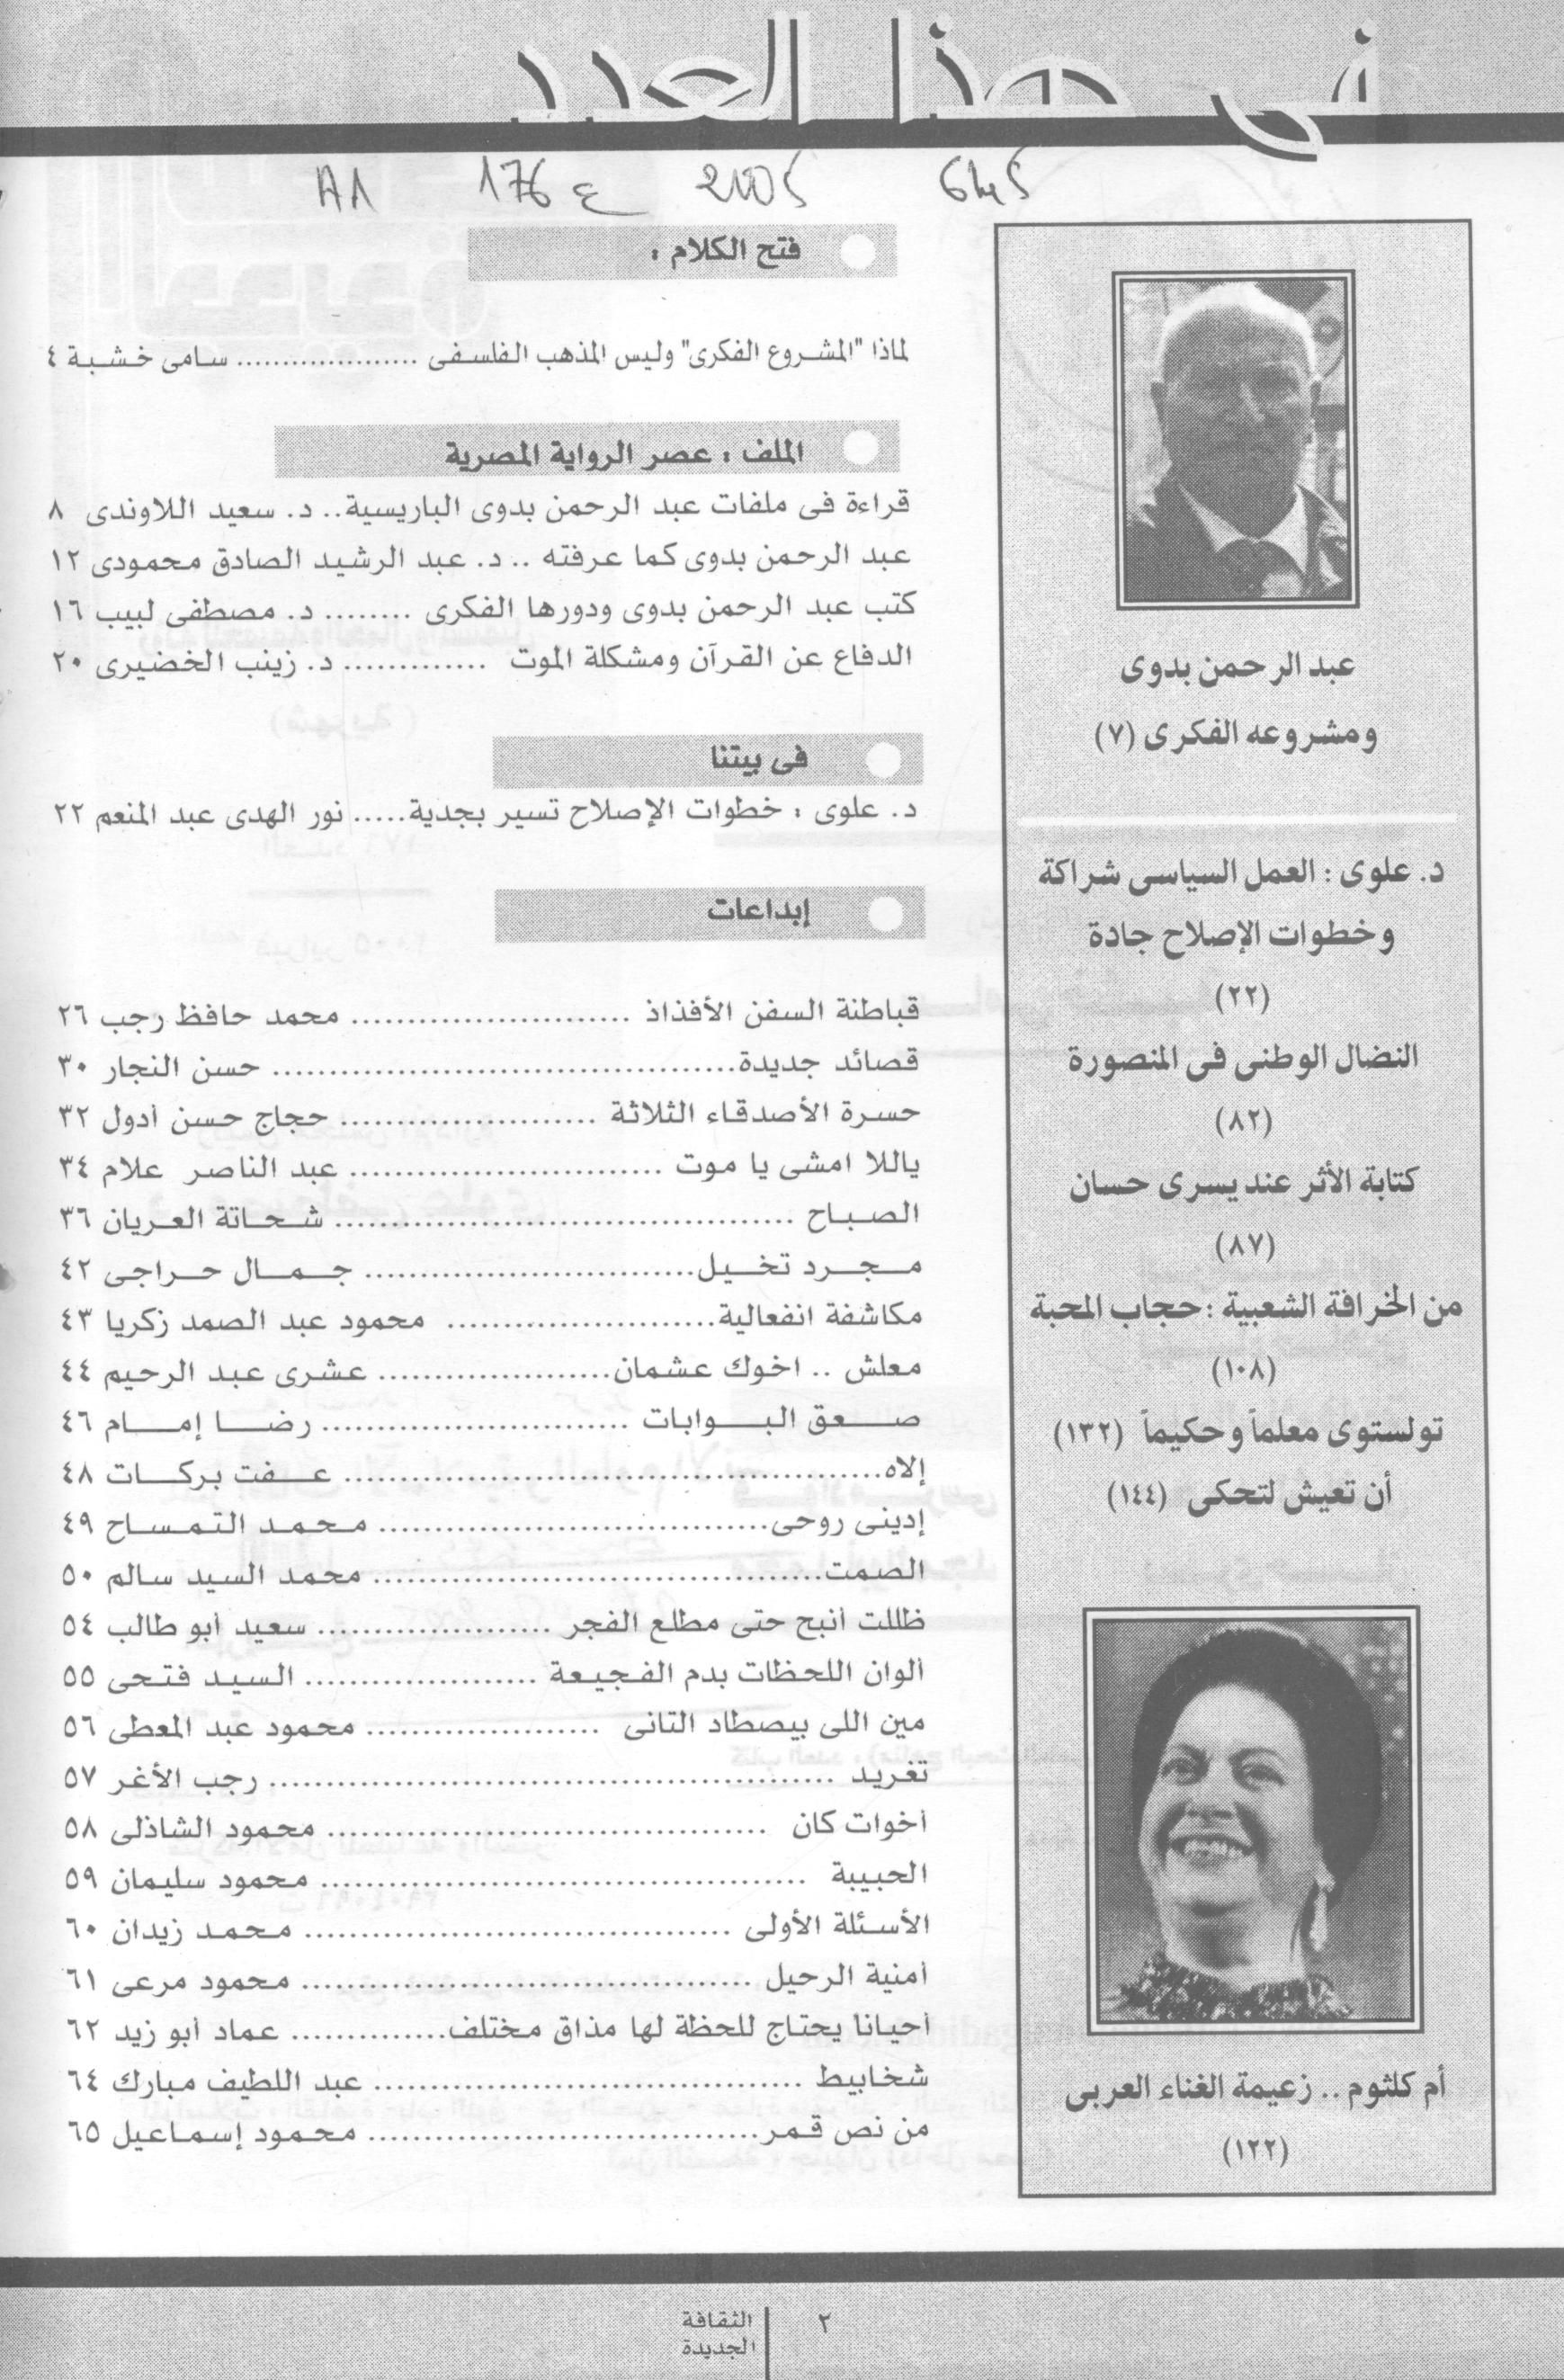 فى هذا العدد
A1 176 ع 2005
عبد الرحمن بدوى
ومشروعه الفكرى (٧)
د. علوى : العمل السياسى شراكة
وخطوات الإصلاح جادة
(٢٢)
النضال الوطنى فى المنصورة
(٨٢)
كتابة الأثر عند يسرى حسان
(٨٧)
من الخرافة الشعبية : حجاب المحبة
(١٠٨)
تولستوى معلماً وحكيماً (١٣٢)
أن تعيش لتحكى (١٤٤)
أم كلثوم .. زعيمة الغناء العربى
(١٢٢)
فتح الكلام :
لماذا "المشروع الفكرى" وليس المذهب الفلسفى .................... سامى خشبة ٤
الملف : عصر الرواية المصرية
قراءة فى ملفات عبد الرحمن بدوى الباريسية.. د. سعيد اللاوندى ٨
عبد الرحمن بدوى كما عرفته .. د. عبد الرشيد الصادق محمودى ١٢
كتب عبد الرحمن بدوى ودورها الفكرى ........ د. مصطفى لبيب ١٦
الدفاع عن القرآن ومشكلة الموت ............. د. زينب الخضيرى ٢٠
فى بيتنا
د. علوى : خطوات الإصلاح تسير بجدية..... نور الهدى عبد المنعم ٢٢
إبداعات
قباطنة السفن الأفذاذ ......................... محمد حافظ رجب ٢٦
قصائد جديدة.......................................... حسن النجار ٣٠
حسرة الأصدقاء الثلاثة ....................... حجاج حسن أدول ٣٢
ياللا امشى يا موت ............................ عبد الناصر علام ٣٤
الصباح ......................................... شحاتة العريان ٣٦
مجرد تخيل.............................. جمال حراجى ٤٢
مكاشفة انفعالية........................ محمود عبد الصمد زكريا ٤٣
معلش .. اخوك عشمان..................... عشرى عبد الرحيم ٤٤
صعق البوابات ............................ رضا إمام ٤٦
إلاه................................................ عفت بركات ٤٨
إدينى روحى................................... محمد التمساح ٤٩
الصمت........................................ محمد السيد سالم ٥٠
ظللت أنبح حتى مطلع الفجر ..................... سعيد أبو طالب ٥٤
ألوان اللحظات بدم الفجيعة ..................... السيد فتحى ٥٥
مين اللى بيصطاد التانى ..................... محمود عبد المعطى ٥٦
تغريد ................................................... رجب الأغر ٥٧
أخوات كان ....................................... محمود الشاذلى ٥٨
الحبيبة ............................................ محمود سليمان ٥٩
الأسئلة الأولى ...................................... محمد زيدان ٦٠
أمنية الرحيل ........................................ محمود مرعى ٦١
أحيانا يحتاج للحظة لها مذاق مختلف.............. عماد أبو زيد ٦٢
شخابيط ....................................... عبد اللطيف مبارك ٦٤
من نص قمر................................... محمود إسماعيل ٦٥
٢
الثقافة
الجديدة